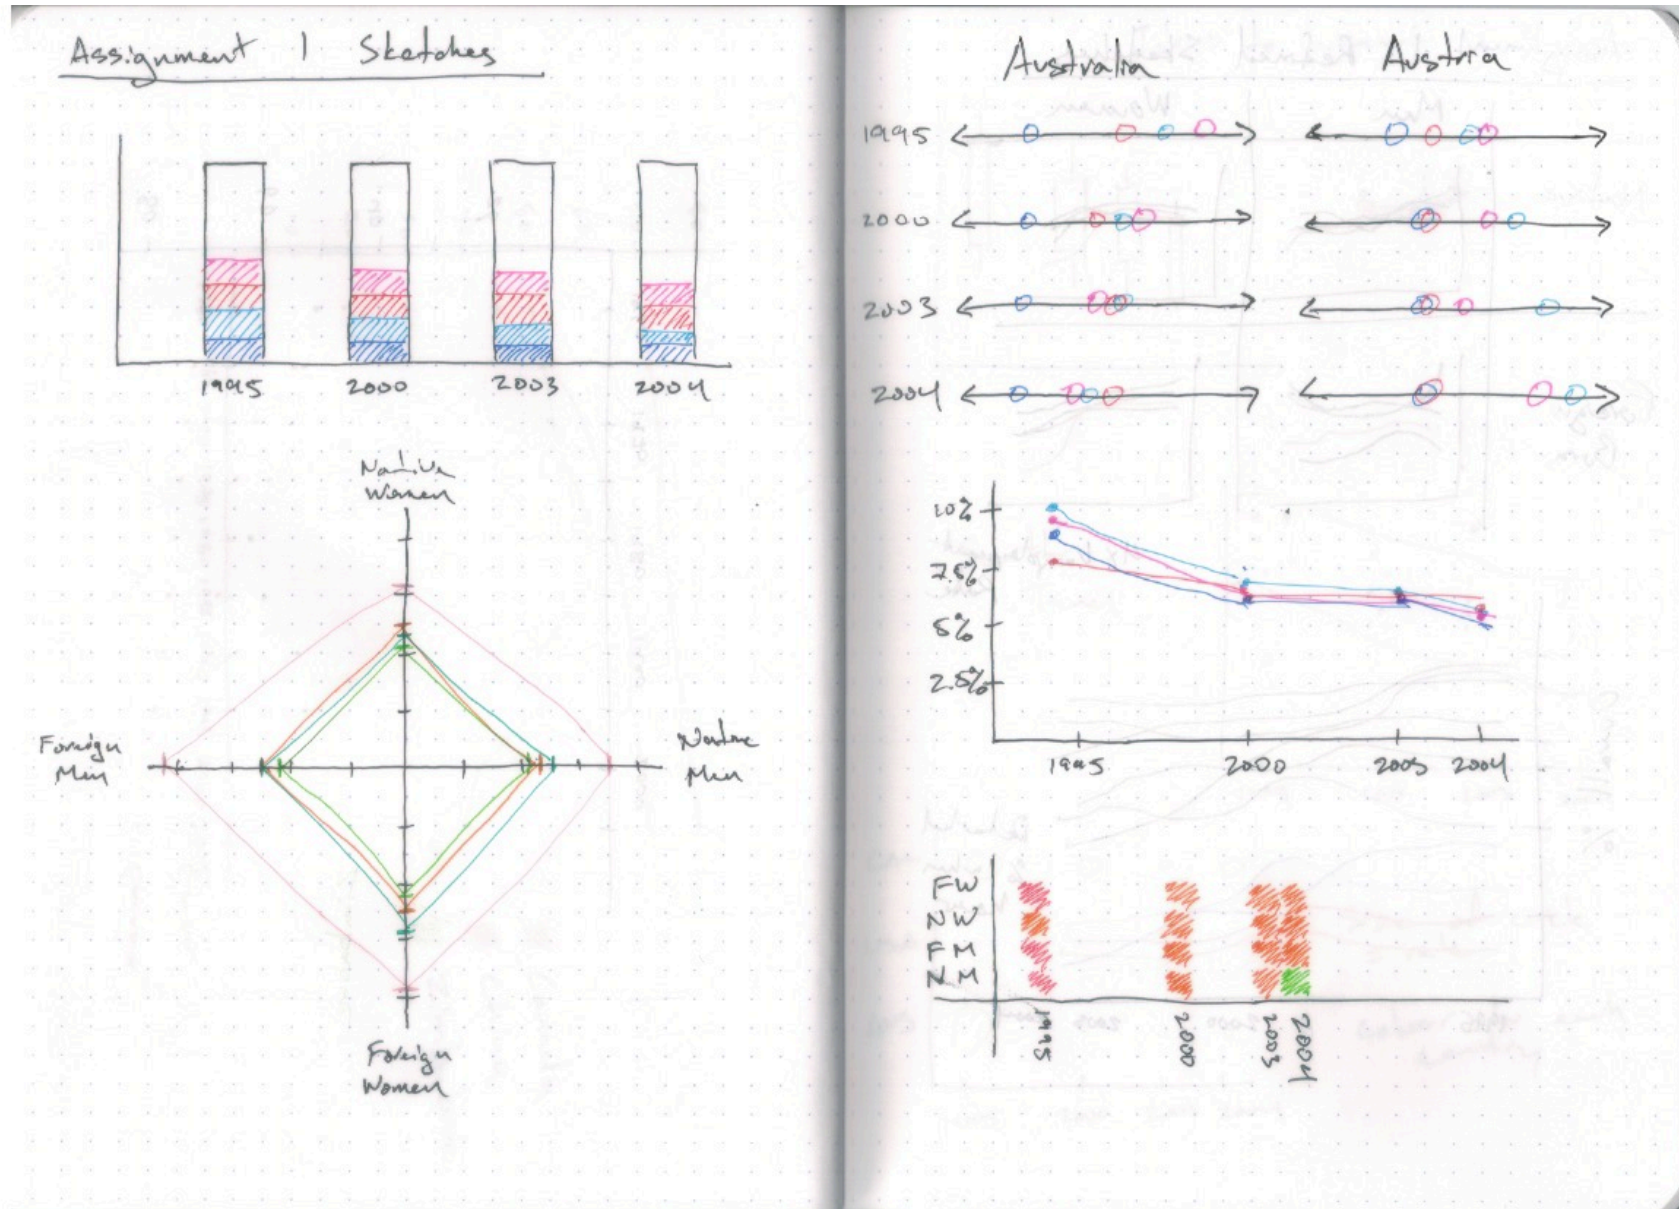 Assignment 1 Sketches
1995 2000 2003 2004
Native
Women
Foreign
Men
Native
Men
Foreign
Women
Australia Austria
1995
2000
2003
2004
10%
7.5%
5%
2.5%
1995 2000 2003 2004
FW
NW
FM
NM
1995 2000 2003 2004